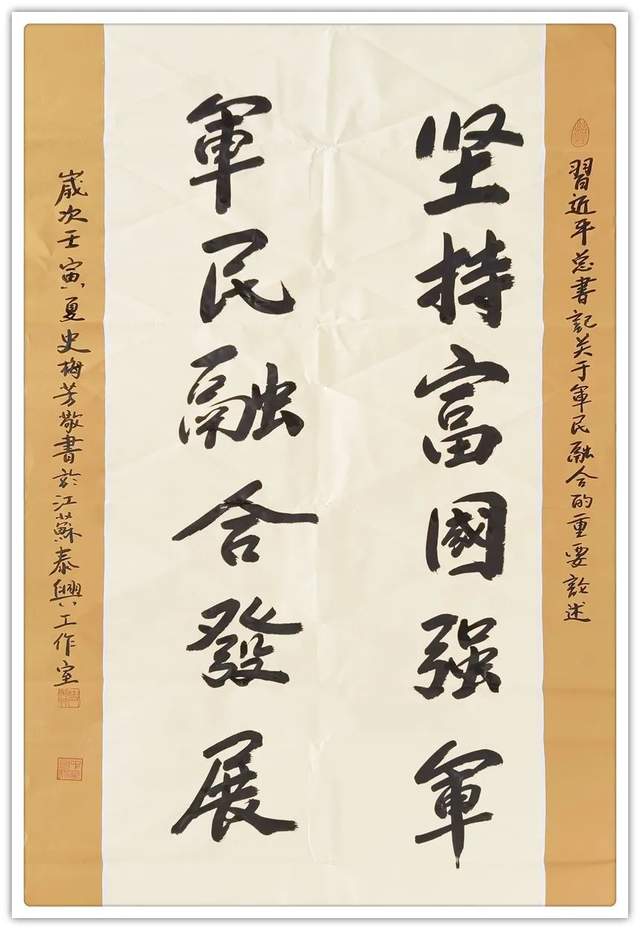 習近平总書記关于軍民融合的重要論述
坚持富國强軍
軍民融合發展
嵗次壬寅夏史梅芳敬書於江蘇泰興工作室